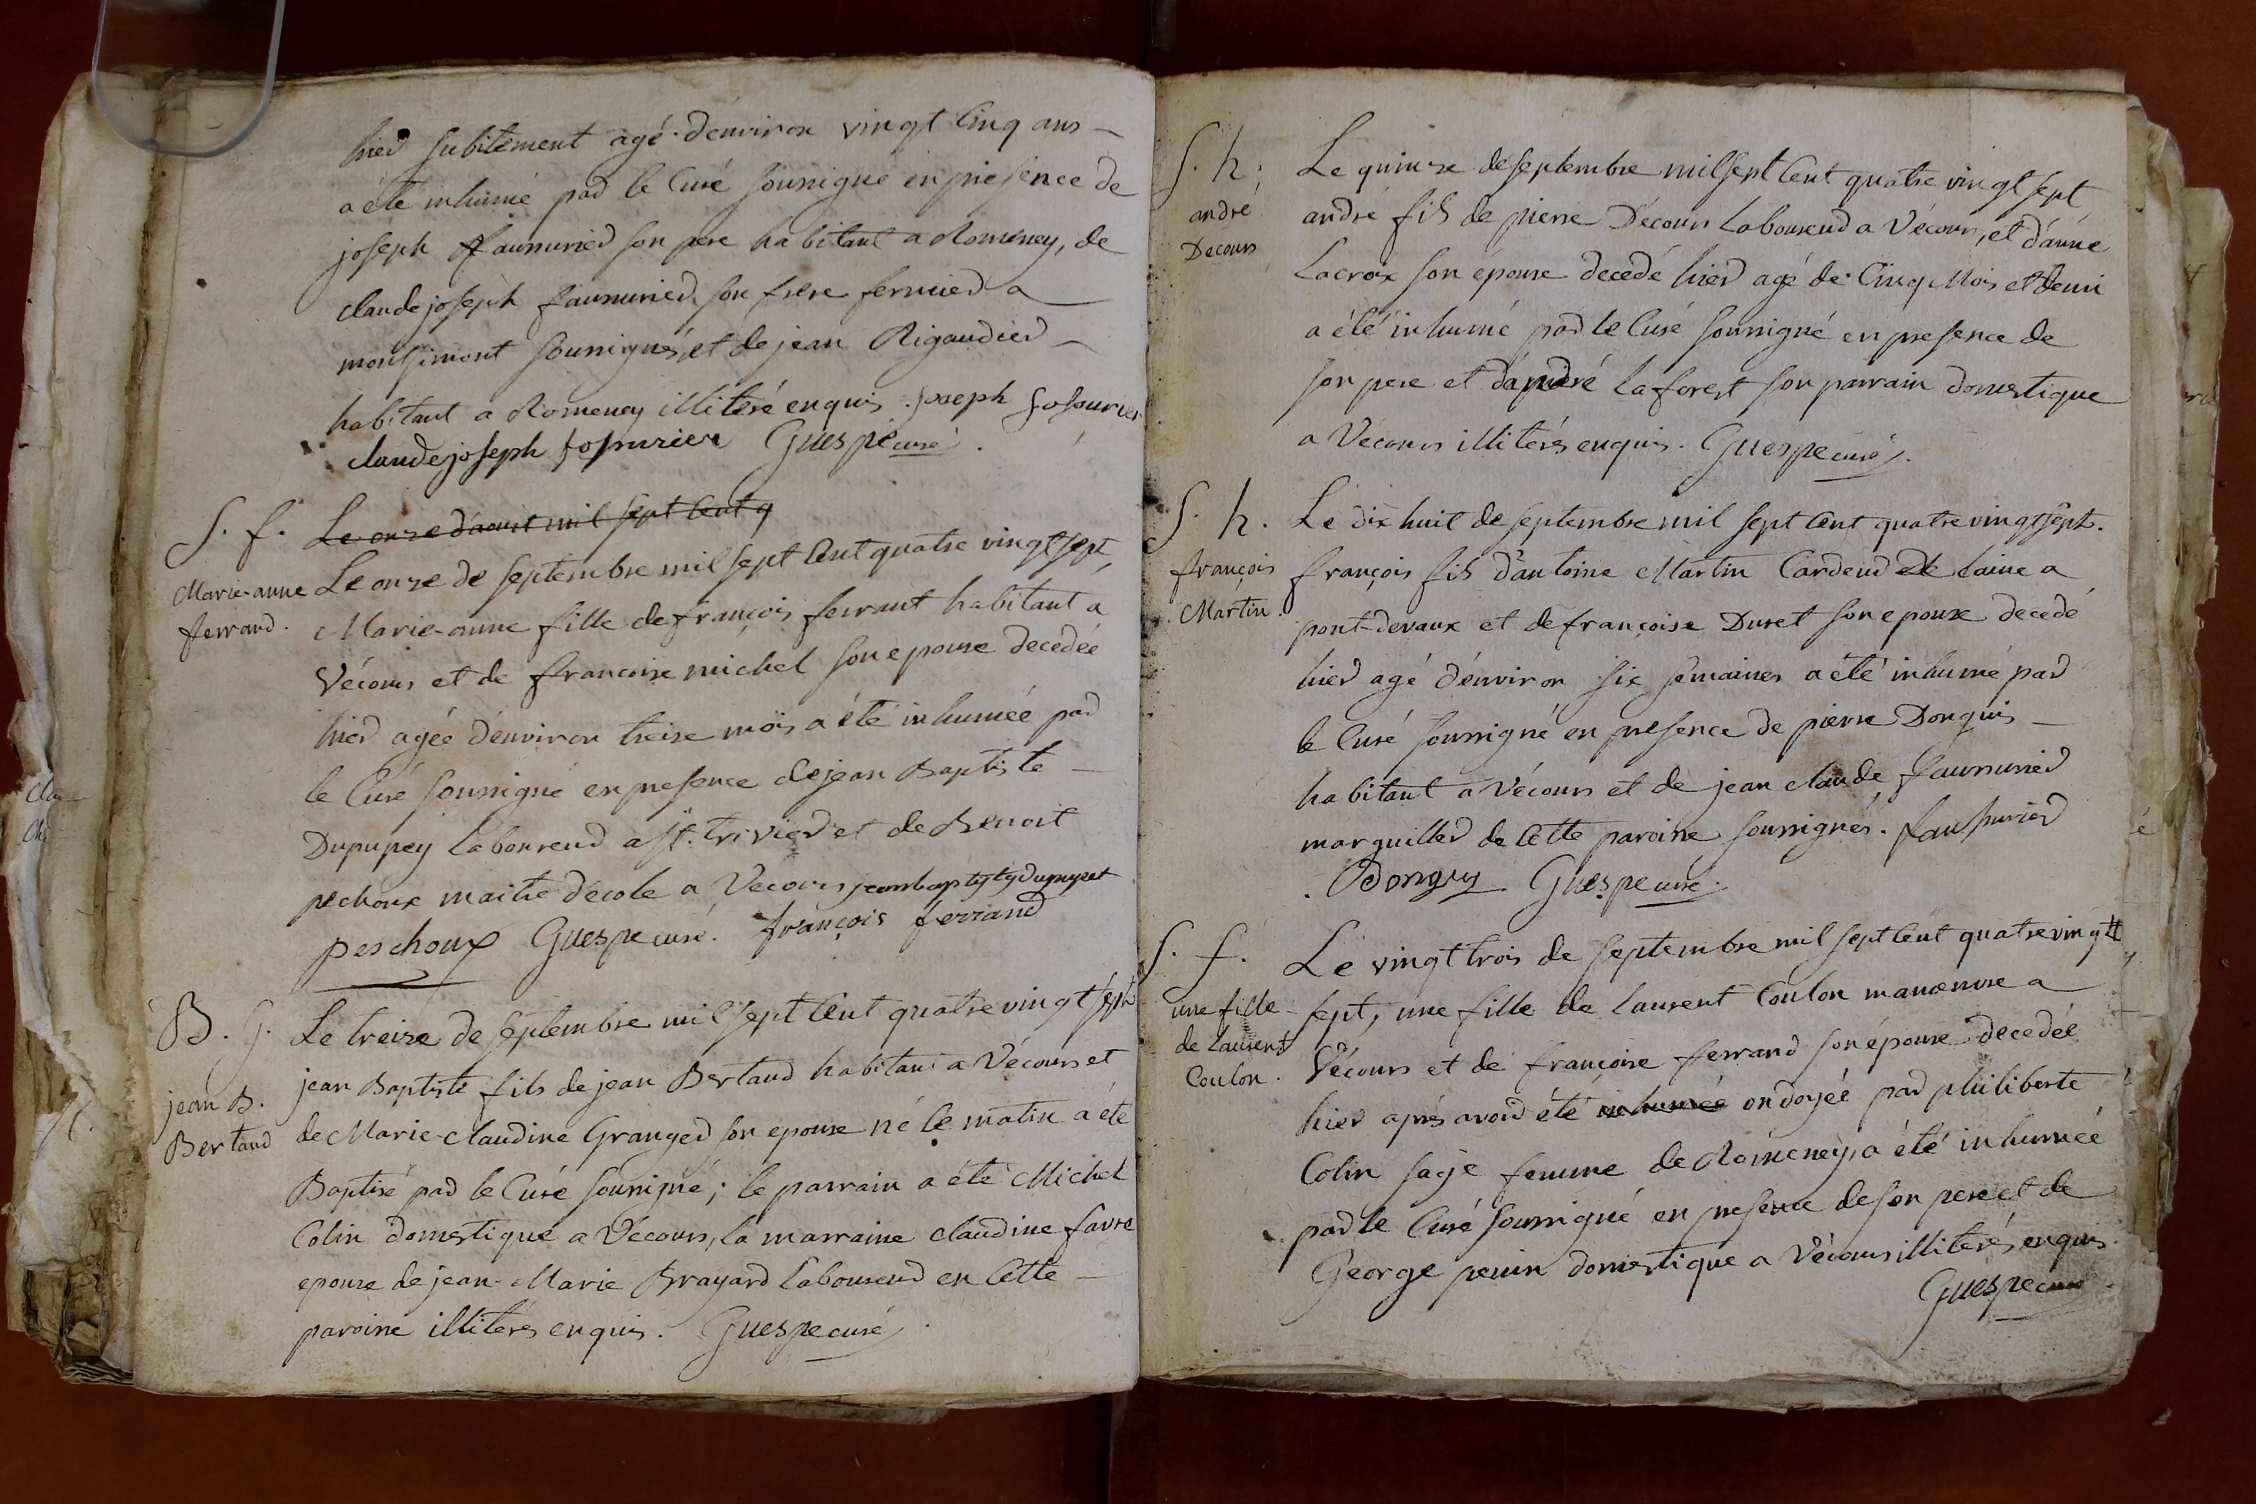 hier subitement agé d'environ vingt cinq ans
a été inhumé par le Curé soussigné en présence de
joseph faussurier son pere habitant a Romeney, de
claude joseph faussurier son frere fermier a
montsimont soussignés, et de jean Rigaudier
habitant a Romeney illiteré enquis. joseph fosurier
claude joseph fossurier Guespe curé.
S. f.
Marie-anne
ferrand.
Le onze d'aoust mil sept Cent q
Le onze de septembre mil sept Cent quatre vingt sept,
Marie-anne fille de françois ferrant habitant a
Vécours et de francoise michel son epouse decedée
hier agée d'environ treize mois a été inhumée par
le Curé soussigné en presence de jean Baptiste
Dupupey laboureur a st. trivier et de Benoit
pechoux maitre d'ecole a Vecours jean baptiste dupupet
peschoux Guespe curé. françois ferrand
B. g.
jean B.
Bertaud
Le treize de septembre mil sept Cent quatre vingt sept
jean Baptiste fils de jean Bertaud habitant a Vécours et
de Marie-claudine Granger son epouse né le matin a été
Baptisé par le Curé soussigné; le parrain a été Michel
Colin domestique a Vécours, la marraine claudine favre
epouse de jean-Marie Brayard laboureur en Cette
paroisse illiterés enquis. Guespe curé.
S. h.
andré
Decours
Le quinze de septembre mil sept Cent quatre vingt sept
andré fils de pierre Décours laboureur a Vécours, et d'anne
Lacroix son épouse decedé hier agé de Cinq Mois et demi
a été inhumé par le Curé soussigné en presence de
son pere et d'andré laforest son parrain domestique
a Vecours illiterés enquis. Guespe curé.
S. h.
françois
Martin.
Le dix huit de septembre mil sept Cent quatre vingt sept.
françois fils d'antoine Martin Cardeur de laine a
pont-devaux et de françoise Duret son epouse decedé
hier agé d'environ six semaines a été inhumé par
le Curé soussigné en presence de pierre Donguis
habitant a Vécours et de jean claude faussurier
marguiller de Cette paroisse soussignés. faussurier
Donguy Guespe curé.
S. f.
une fille
de Laurent
Coulon.
Le vingt trois de septembre mil sept Cent quatre vingt
sept, une fille de laurent Coulon manœuvre a
Vécours et de françoise ferrand son épouse decedée
hier aprés avoir été inhumée ondoyée par philiberte
Colin sage femme de Romeney, a été inhumée
par le Curé soussigné en presence de son pere et de
George penin domestique a Vécours illiterés enquis
Guespe curé.